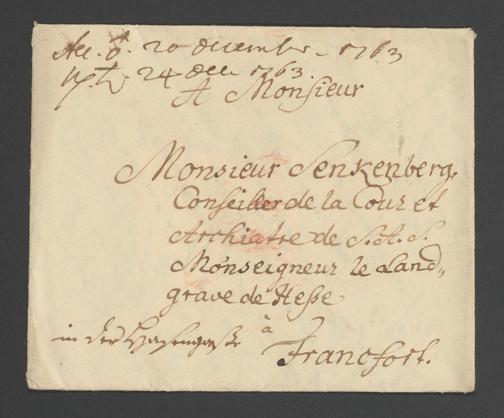 Acc. d. 20 december 1763
24 dec 1763.
A Monsieur
Monsieur Senkenberg,
Conseiller de la Cour et
Archiatre de S. A. S.
Monseigneur le Land„
grave de Hesse
à
in der Hasengaße
Francfort.